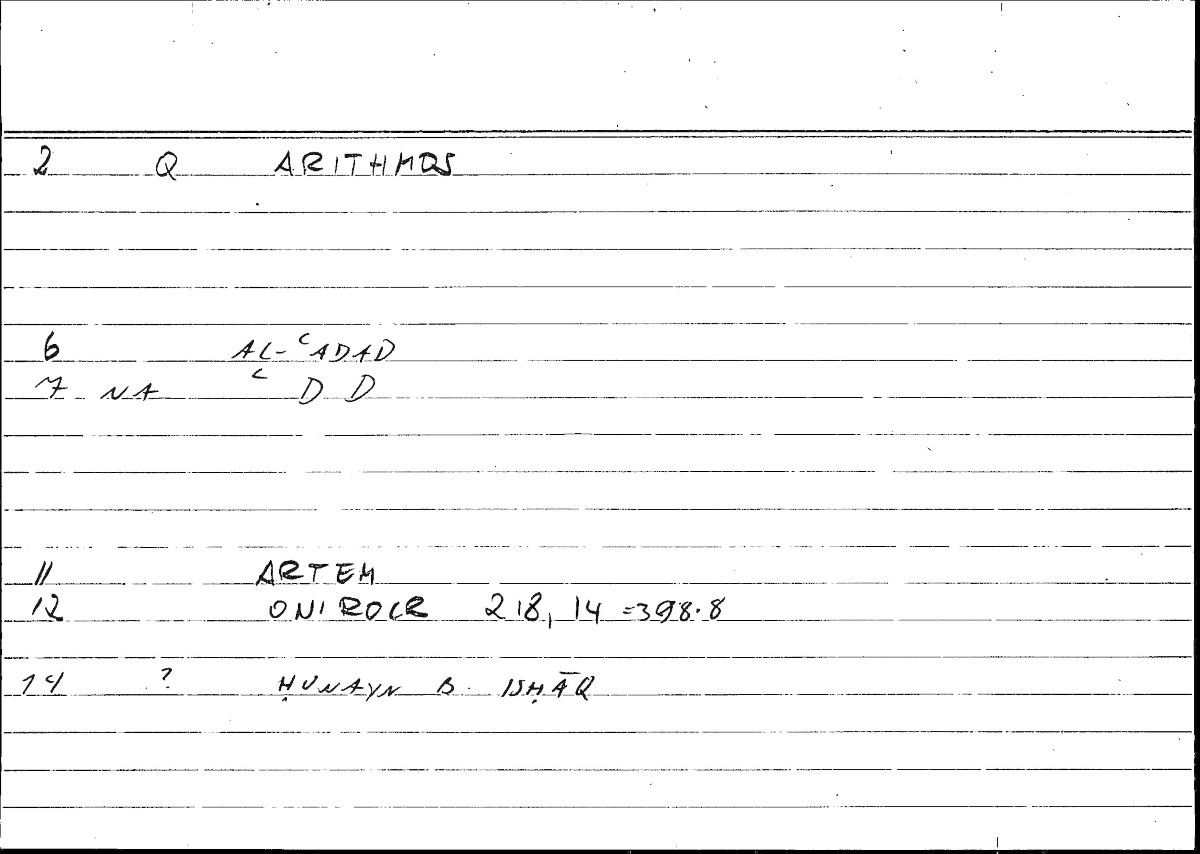 2 Q ARITHMOS
6 AL-ʿADAD
7 NA ʿ D D
11 ARTEM
12 ONIROCR 218, 14 =398.8
14 ? ḤUNAYN B. ISḤĀQ